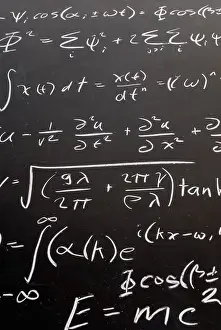 - Ψ, cos(α; ± ωt) = Φ cos((
Φ² = Σ Ψᵢ² + 2 Σ Σ Ψᵢ Ψ
∫ x(t) dt = x(t)/dtⁿ = (i ω)
u - 1/v² ∂²u/∂t² + ∂²u/∂x² + ∂
= √((gλ/2π + 2πγ/ρλ) tanh
) = ∫ (α(k) e i(kx-ω,
∞
-∞
Φ cos((
E = mc²